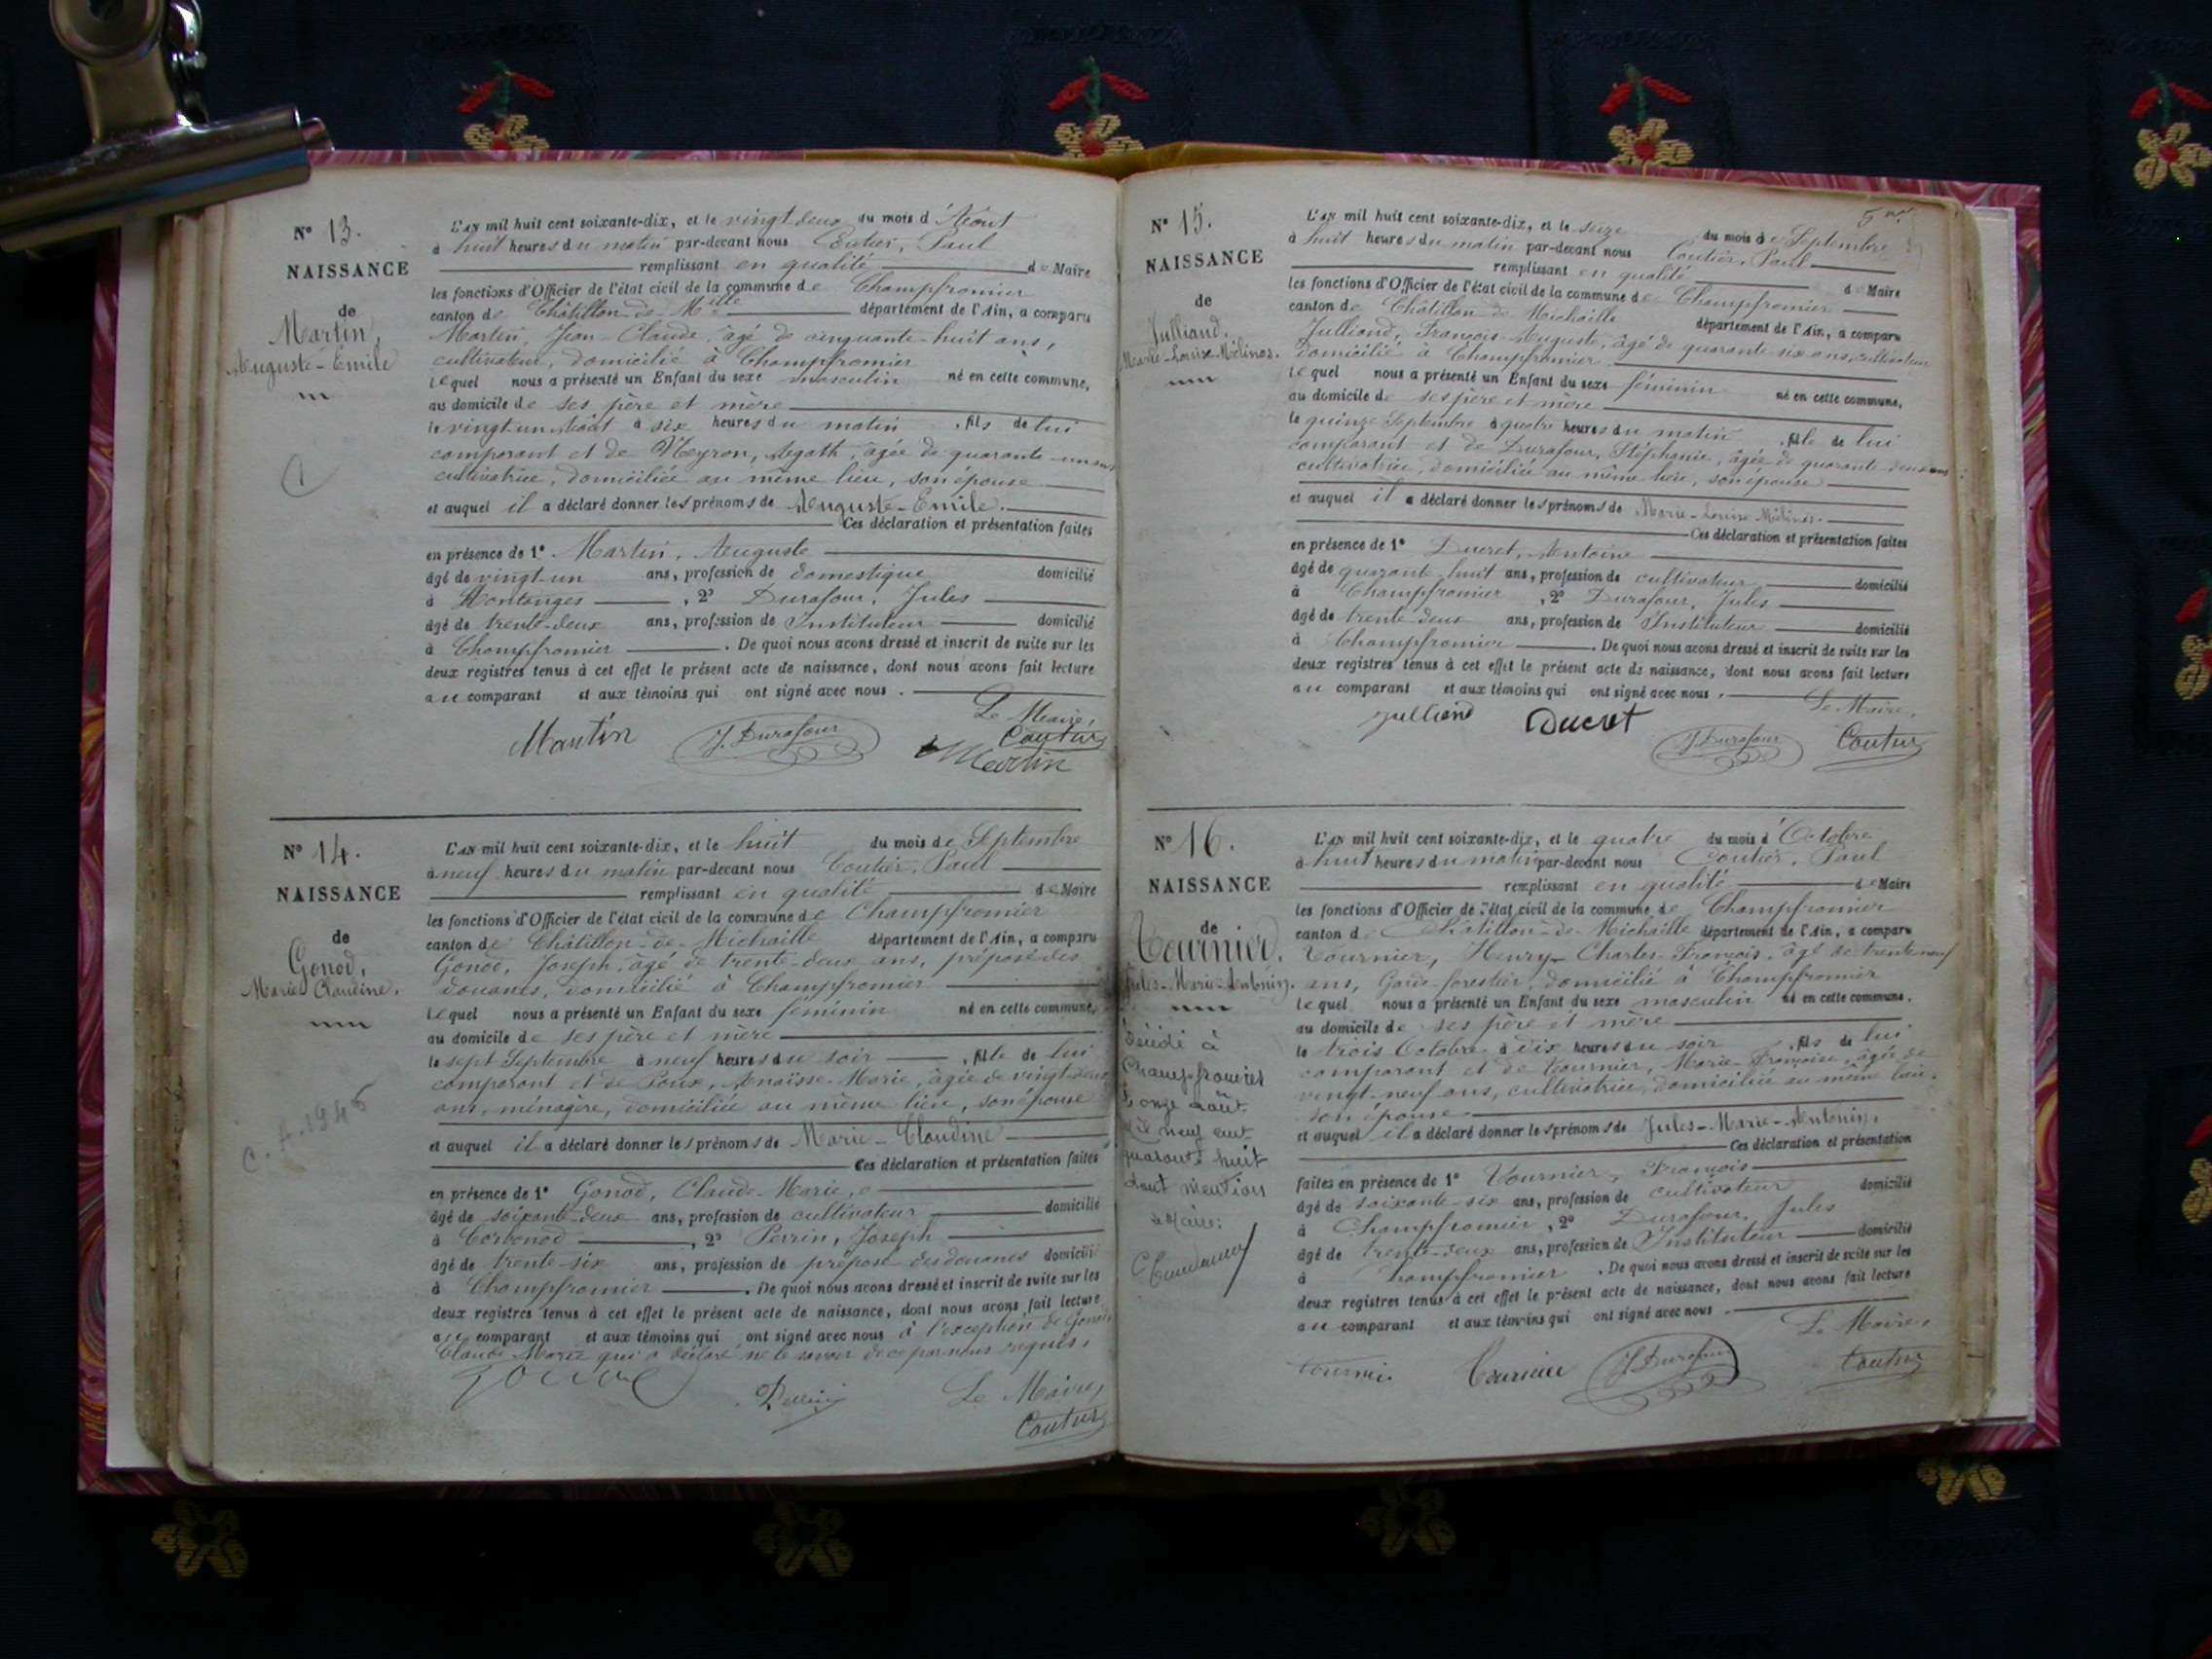 N° 13.
NAISSANCE
de
Martin,
Auguste-Emile
L'AN mil huit cent soixante-dix, et le vingt-deux du mois d'Août
à huit heures du matin par-devant nous Coutier, Paul
remplissant en qualité de Maire
les fonctions d'Officier de l'état civil de la commune de Champfromier
canton de Châtillon-de-Mlle département de l'Ain, a comparu
Martin, Jean-Claude, âgé de cinquante-huit ans,
cultivateur, domicilié à Champfromier
lequel nous a présenté un Enfant du sexe masculin né en cette commune,
au domicile de ses père et mère
le vingt-un Août à six heures du matin, fils de lui
comparant et de Meyron, Agath, âgée de quarante-un ans
cultivatrice, domiciliée au même lieu, son épouse
et auquel il a déclaré donner les prénoms de Auguste-Emile.
Ces déclaration et présentation faites
en présence de 1° Martin, Auguste
âgé de vingt-un ans, profession de domestique domicilié
à Montanges, 2° Durafour, Jules
âgé de trente-deux ans, profession de Instituteur domicilié
à Champfromier. De quoi nous avons dressé et inscrit de suite sur les
deux registres tenus à cet effet le présent acte de naissance, dont nous avons fait lecture
au comparant et aux témoins qui ont signé avec nous.
Le Maire,
Martin J. Durafour Coutier
Martin
N° 14.
NAISSANCE
de
Gonod,
Marie Claudine.
C. A. 1946
L'AN mil huit cent soixante-dix, et le huit du mois de Septembre
à neuf heures du matin par-devant nous Coutier, Paul
remplissant en qualité de Maire
les fonctions d'Officier de l'état civil de la commune de Champfromier
canton de Châtillon-de-Michaille département de l'Ain, a comparu
Gonod, Joseph, âgé de trente-deux ans, préposé des
douanes, domicilié à Champfromier
lequel nous a présenté un Enfant du sexe féminin né en cette commune,
au domicile de ses père et mère
le sept Septembre à neuf heures du soir, fille de lui
comparant et de Poux, Anaïsse-Marie, âgée de vingt-deux
ans, ménagère, domiciliée au même lieu, son épouse
et auquel il a déclaré donner les prénoms de Marie-Claudine
Ces déclaration et présentation faites
en présence de 1° Gonod, Claude-Marie,
âgé de soixante-deux ans, profession de cultivateur domicilié
à Corbonod, 2° Perrin, Joseph
âgé de trente-six ans, profession de préposé des douanes domicilié
à Champfromier. De quoi nous avons dressé et inscrit de suite sur les
deux registres tenus à cet effet le présent acte de naissance, dont nous avons fait lecture
au comparant et aux témoins qui ont signé avec nous à l'exception de Gonod
Claude Marie qui a déclaré ne le savoir de ce par nous requis.
Gonod Perrin Le Maire,
Coutier
N° 15.
NAISSANCE
de
Julliand,
Marie-Louise-Mélina.
L'AN mil huit cent soixante-dix, et le seize du mois de Septembre
à huit heures du matin par-devant nous Coutier, Paul
remplissant en qualité de Maire
les fonctions d'Officier de l'état civil de la commune de Champfromier
canton de Châtillon-de-Michaille département de l'Ain, a comparu
Julliand, François-Auguste, âgé de quarante-six ans, cultivateur
domicilié à Champfromier
lequel nous a présenté un Enfant du sexe féminin né en cette commune,
au domicile de ses père et mère
le quinze Septembre à quatre heures du matin, fille de lui
comparant et de Durafour, Stéphanie, âgée de quarante-deux ans
cultivatrice, domiciliée au même lieu, son épouse
et auquel il a déclaré donner les prénoms de Marie-Louise
Ces déclaration et présentation faites
en présence de 1° Ducret, Antoine
âgé de quarante-huit ans, profession de cultivateur domicilié
à Champfromier, 2° Durafour, Jules
âgé de trente-deux ans, profession de Instituteur domicilié
à Champfromier. De quoi nous avons dressé et inscrit de suite sur les
deux registres tenus à cet effet le présent acte de naissance, dont nous avons fait lecture
au comparant et aux témoins qui ont signé avec nous.
Le Maire,
Julliand Ducret J. Durafour Coutier
N° 16.
NAISSANCE
de
Tournier,
Jules-Marie-Antonin.
Décédé à
Champfromier
le onze août
mil neuf cent
quarante huit
dont mention
Le Maire:
L'AN mil huit cent soixante-dix, et le quatre du mois d'Octobre
à huit heures du matin par-devant nous Coutier, Paul
remplissant en qualité de Maire
les fonctions d'Officier de l'état civil de la commune de Champfromier
canton de Châtillon-de-Michaille département de l'Ain, a comparu
Tournier, Henry-Charles-François, âgé de trente-neuf
ans, Garde-forestier, domicilié à Champfromier
lequel nous a présenté un Enfant du sexe masculin né en cette commune,
au domicile de ses père et mère
le trois Octobre à dix heures du soir, fils de lui
comparant et de Tournier, Marie-Françoise, âgée de
vingt-neuf ans, cultivatrice, domiciliée au même lieu,
son épouse
et auquel il a déclaré donner les prénoms de Jules-Marie-Antonin.
Ces déclaration et présentation
faites en présence de 1° Tournier, François
âgé de soixante-six ans, profession de cultivateur domicilié
à Champfromier, 2° Durafour, Jules
âgé de trente-deux ans, profession de Instituteur domicilié
à Champfromier. De quoi nous avons dressé et inscrit de suite sur les
deux registres tenus à cet effet le présent acte de naissance, dont nous avons fait lecture
au comparant et aux témoins qui ont signé avec nous.
Le Maire,
Tournier Tournier J. Durafour Coutier